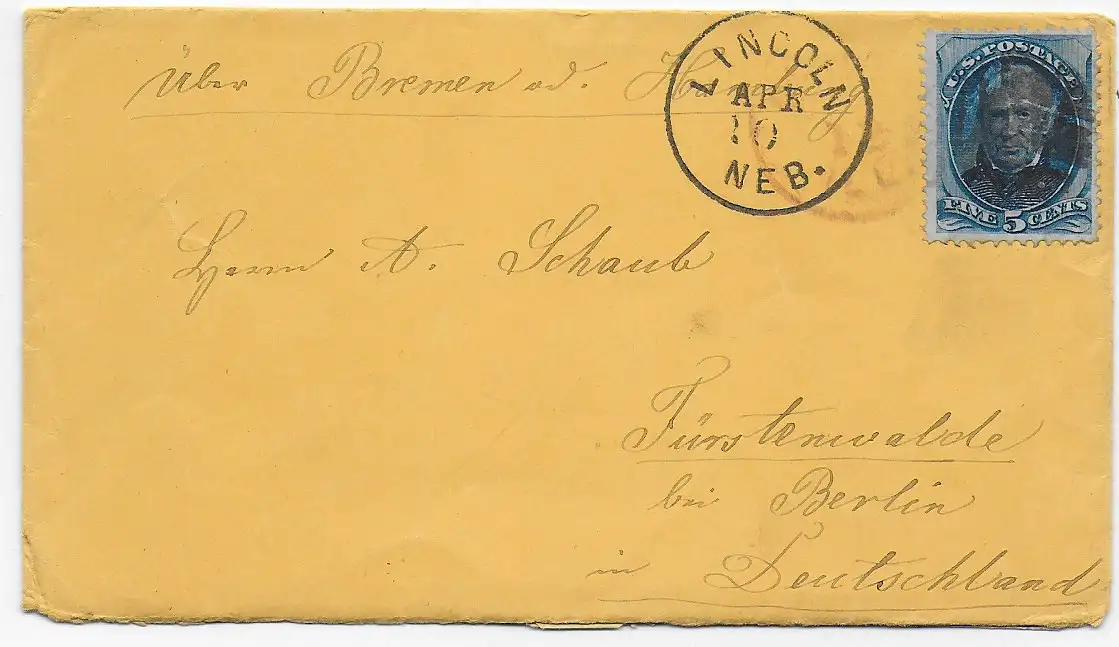 Über Bremen od. Hamburg
LINCOLN
APR
10
NEB.
U.S. POSTAGE
FIVE 5 CENTS
Herrn A. Schaub
Fürstenwalde
bei Berlin
in Deutschland